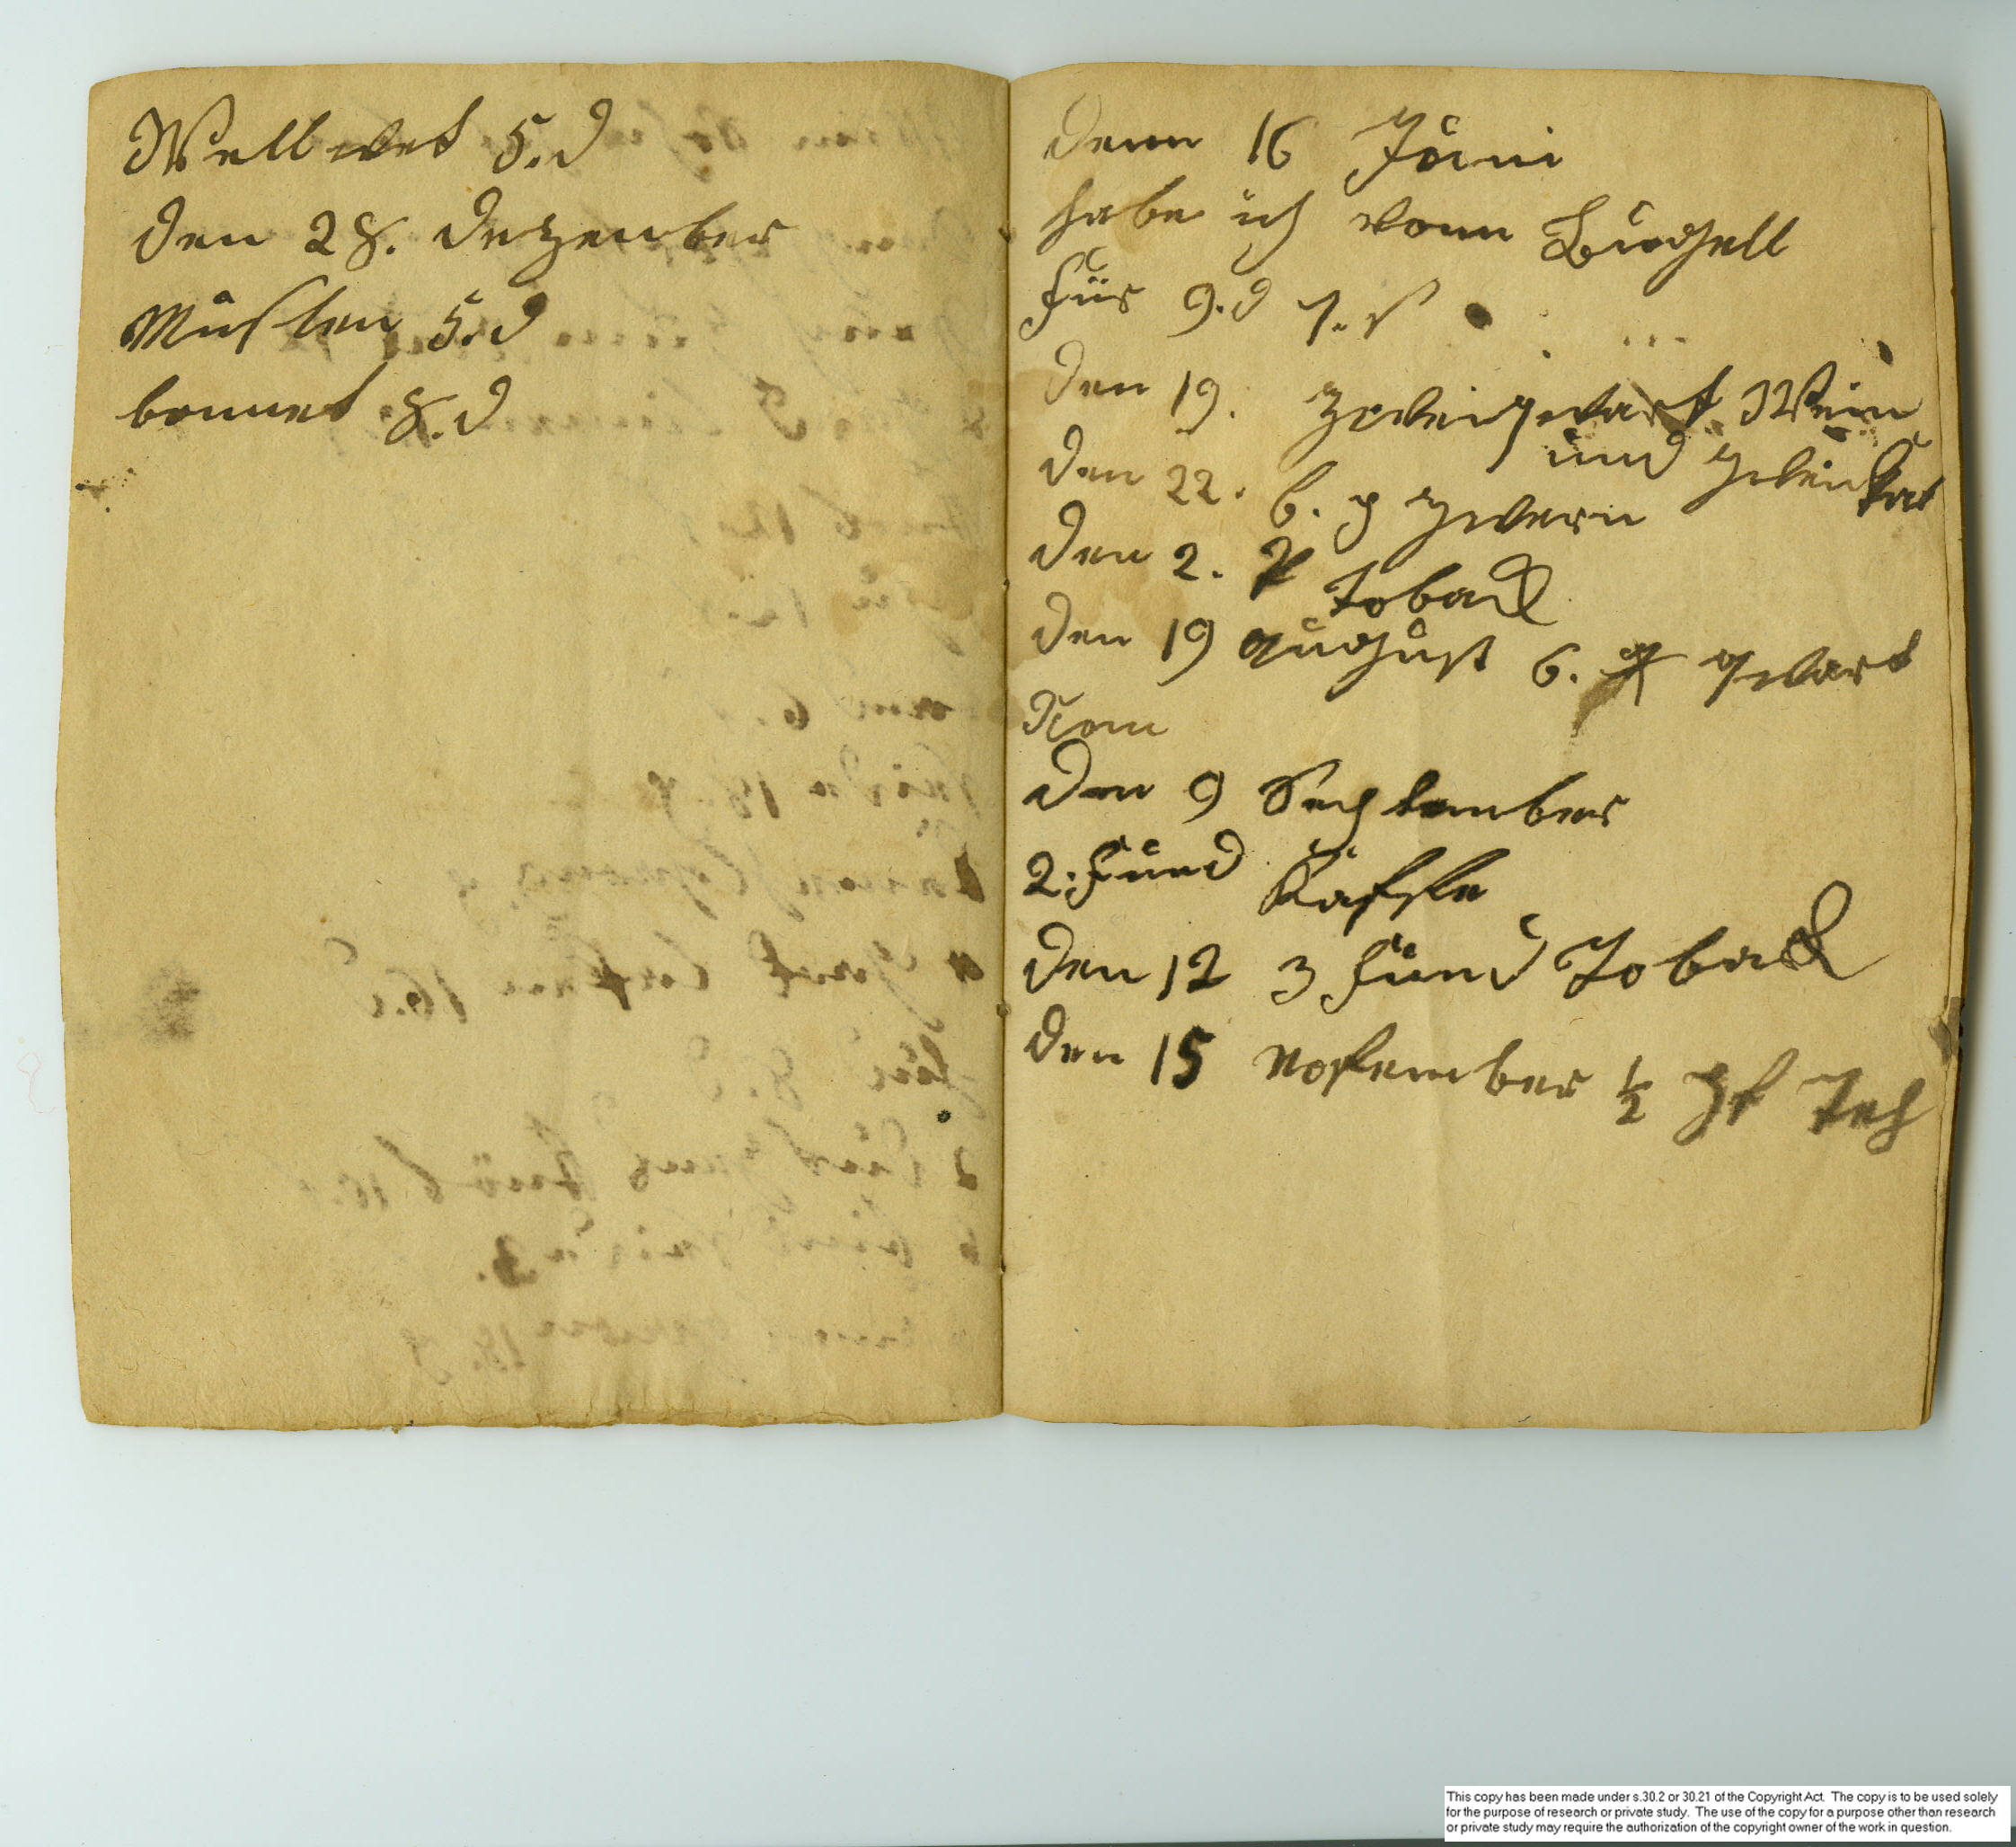 Wellwet 5.d
den 28. dezember
Muslen 5.d
bonnet 8.d
denn 16 Juni
habe ich vonn
für 9.d 7.s
den 19. zweigwart Wein
und
den 22. 6. zwern
den 2. Toback
den 19 august 6. gwart
Rom
den 9 September
2. Fund Kaffe
den 12 3 Fund Toback
den 15 nofember ½ Teh
This copy has been made under s.30.2 or 30.21 of the Copyright Act. The copy is to be used solely
for the purpose of research or private study. The use of the copy for a purpose other than research
or private study may require the authorization of the copyright owner of the work in question.